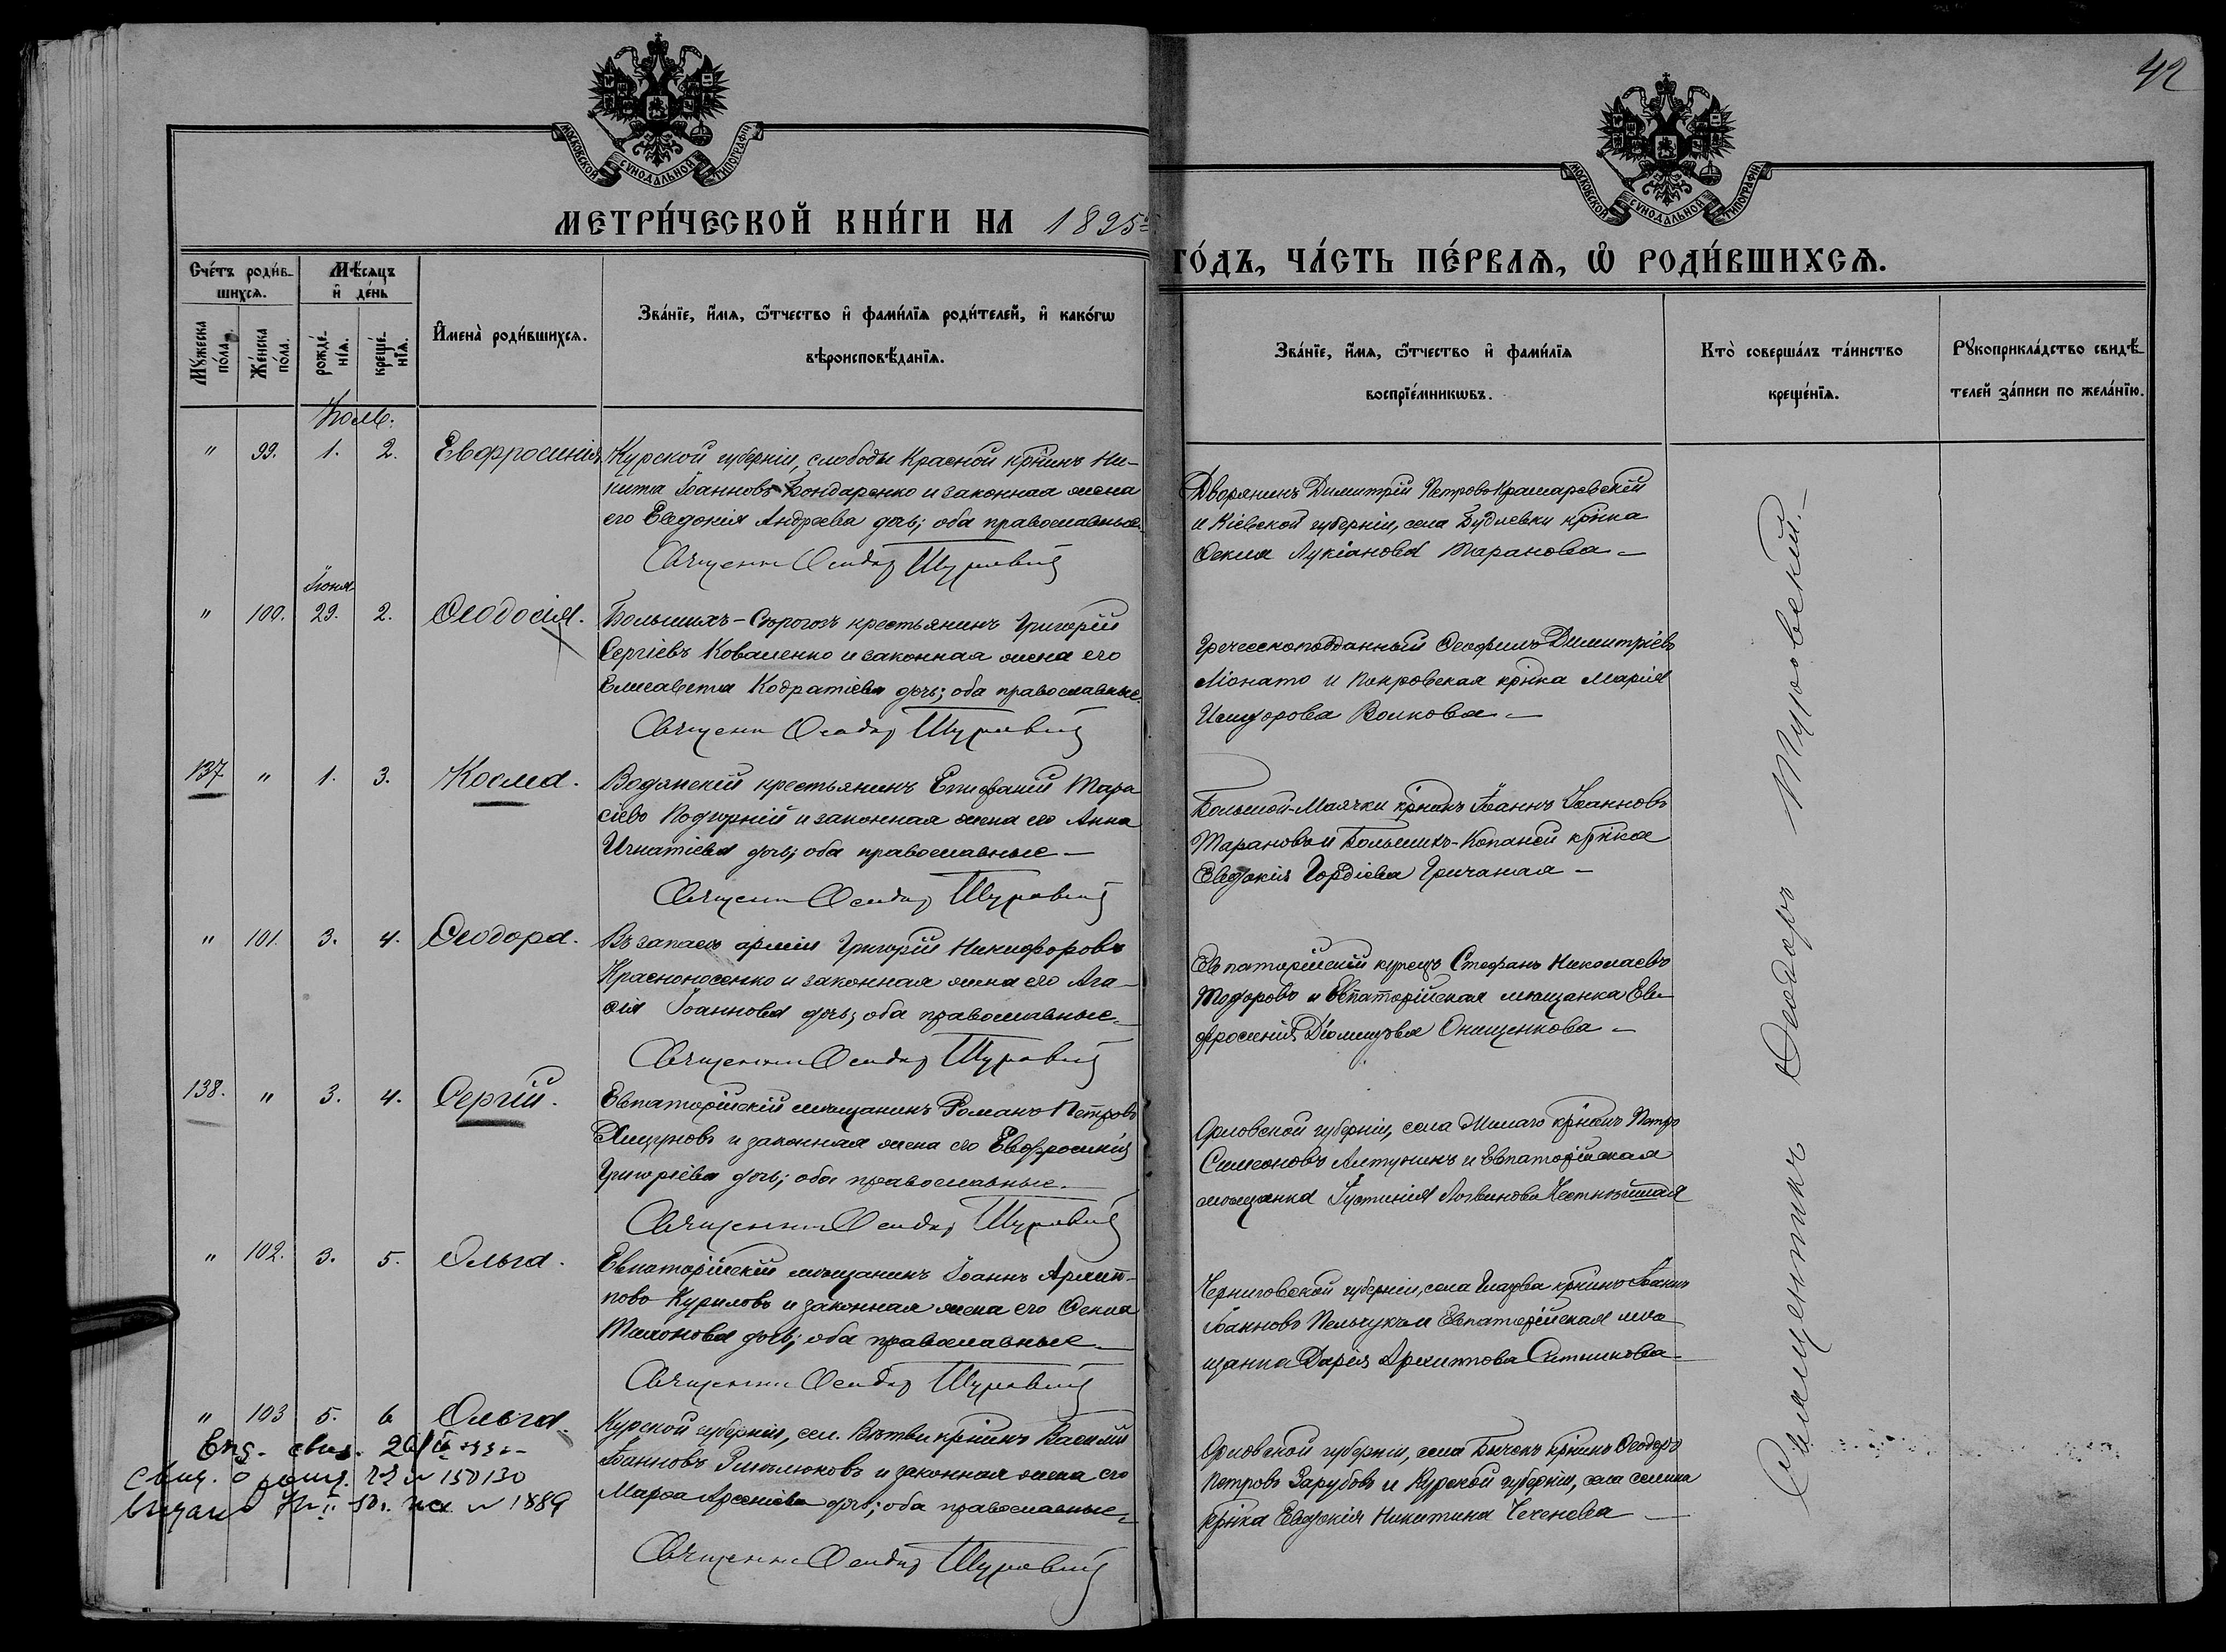 42
МОСКОВСКОЙ СѴНОДАЛЬНОЙ ТИПОГРАФІИ
МОСКОВСКОЙ СѴНОДАЛЬНОЙ ТИПОГРАФІИ
МЕТРИ́ЧЕСКОЙ КНИ́ГИ НА 1895
ГО́ДЪ, ЧА́СТЬ ПЕ́РВАѦ, Ѡ РОДИ́ВШИХСѦ.
Сче́тъ роди́в-
шихсѧ.
Мѣ́сѧцъ
и҆ де́нь
Мꙋ́жеска по́ла.
Же́нска по́ла.
рожде́-
нїѧ.
креще́-
нїѧ.
И҆мена̀ роди́вшихсѧ.
Зва́нїе, и҆́мѧ, ѻ҆́тчество и҆ фами́лїѧ роди́телей, и҆ како́гѡ
вѣроисповѣ́данїѧ.
Зва́нїе, и҆́мѧ, ѻ҆́тчество и҆ фами́лїѧ
воспрїе́мникѡвъ.
Кто̀ соверша́лъ та́инство
креще́нїѧ.
Рꙋкоприкла́дство свидѣ́-
телей за́писи по жела́нїю.
Іюль.
" 99. 1. 2. Евфросинія
Курской губерніи, слободы Красной кр̃нинъ Ни-
кита Іоанновъ Бондаренко и законная жена
его Евдокія Андреева дочь; оба православные
Священникъ Ѳеодоръ Шуровскій
Дворянинъ Димитрій Петровъ Крамаревскій
и Кіевской губерніи, села Будаевки кр̃нка
Ѳекла Лукіанова Таранова
Іюня
" 100. 29. 2. Ѳеодосія.
Большихъ-Сѣрогозъ крестьянинъ Григорій
Сергіевъ Коваленко и законная жена его
Елисавета Кодратіева дочь; оба православные.
Священникъ Ѳеодоръ Шуровскій
Греческоподданный Ѳеофилъ Димитріевъ
Ліонато и Покровская кр̃нка Марія
Исидорова Волкова
137. " 1. 3. Косма.
Водянскій крестьянинъ Епифаній Тара
сіевъ Подгорній и законная жена его Анна
Игнатіева дочь; оба православные
Священникъ Ѳеодоръ Шуровскій
Большой-Маячки кр̃нинъ Іоаннъ Іоанновъ
Тарановъ и Большихъ-Копаней кр̃нка
Евдокія Гордіева Гричаная
" 101. 3. 4. Ѳеодора.
Въ запасѣ арміи Григорій Никифоровъ
Красноносенко и законная жена его Ага-
ѳія Іоаннова дочь; оба православные.
Священникъ Ѳеодоръ Шуровскій
Евпаторійскій купецъ Стефанъ Николаевъ
Тодоровъ и Евпаторійская мѣщанка Ев-
фросинія Діомидова Онищенкова
138. " 3. 4. Сергій.
Евпаторійскій мѣщанинъ Романъ Петровъ
и законная жена его Евфросинія
Григоріева дочь; оба православные.
Священникъ Ѳеодоръ Шуровскій
Орловской губерніи, села кр̃нинъ Петръ
Симеоновъ Алтунинъ и Евпаторійская
мѣщанка Іустинія Логвинова
" 102. 3. 5. Ольга.
Евпаторійскій мѣщанинъ Іоаннъ Архип-
повъ Куриловъ и законная жена его Ѳекла
дочь; оба православные
Священникъ Ѳеодоръ Шуровскій
Черниговской губерніи, села кр̃нинъ Іоаннъ
Іоанновъ Пельчукъ и Евпаторійская мѣ-
щанка Дарія Архиппова Ситникова
" 103 5. 6 Ольга.
Курской губерніи, сел. Вѣтви кр̃нинъ Василій
Іоанновъ и законная жена его
Марѳа Арсеніева дочь; оба православные
Священникъ Ѳеодоръ Шуровскій
Орловской губерніи, села кр̃нинъ Ѳеодоръ
Петровъ Зарубовъ и Курской губерніи, села
кр̃нка Евдокія Никитина Чеченева
свид. о рожд. 150130
1889
Священникъ Ѳеодоръ Шуровскій.